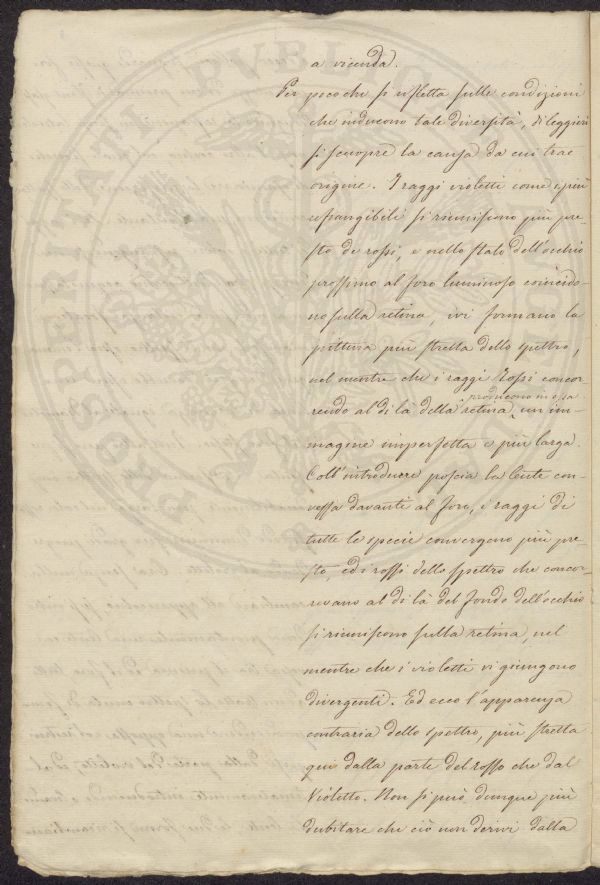 a vicenda.
Per poco che si rifletta sulle condizioni
che inducono tale diversità, di leggieri
si scuopre la causa da cui trae
origine. I raggi violetti come i più
refrangibili si riuniscono più pre-
sto de rossi, e nello stato dell'occhio
prossimo al foro luminoso coincido-
no sulla retina, ivi formano la
pittura più stretta dello spettro,
nel mentre che i raggi rossi concor-
rendo al di là della retina producono in essa un im-
magine imperfetta e più larga.
Coll'introdurre poscia la lente con-
vessa davanti al foro, i raggi di
tutte le specie convergono più pre-
sto, ed i rossi dello spettro che concor-
revano al di là del fondo dell'occhio
si riuniscono sulla retina, nel
mentre che i violetti vi giungono
divergenti. Ed ecco l'apparenza
contraria dello spettro, più stretta
qui dalla parte del rosso che dal
violetto. Non si può dunque più
dubitare che ciò non derivi dalla
PROSPERITATI PVBLICAE